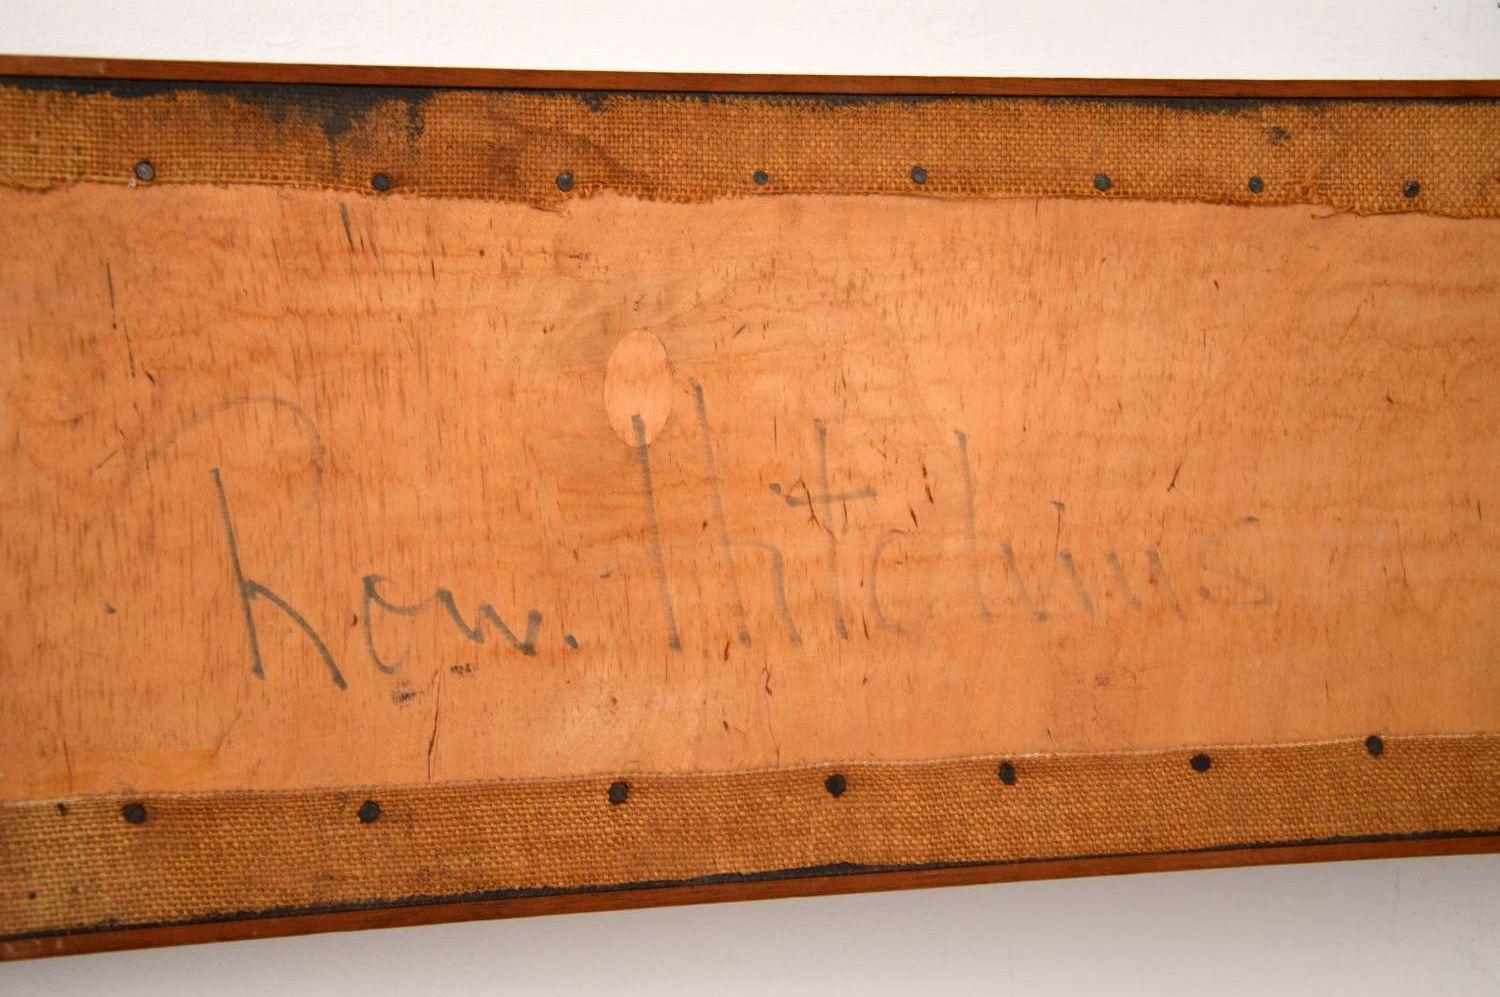 Row. Hitchins